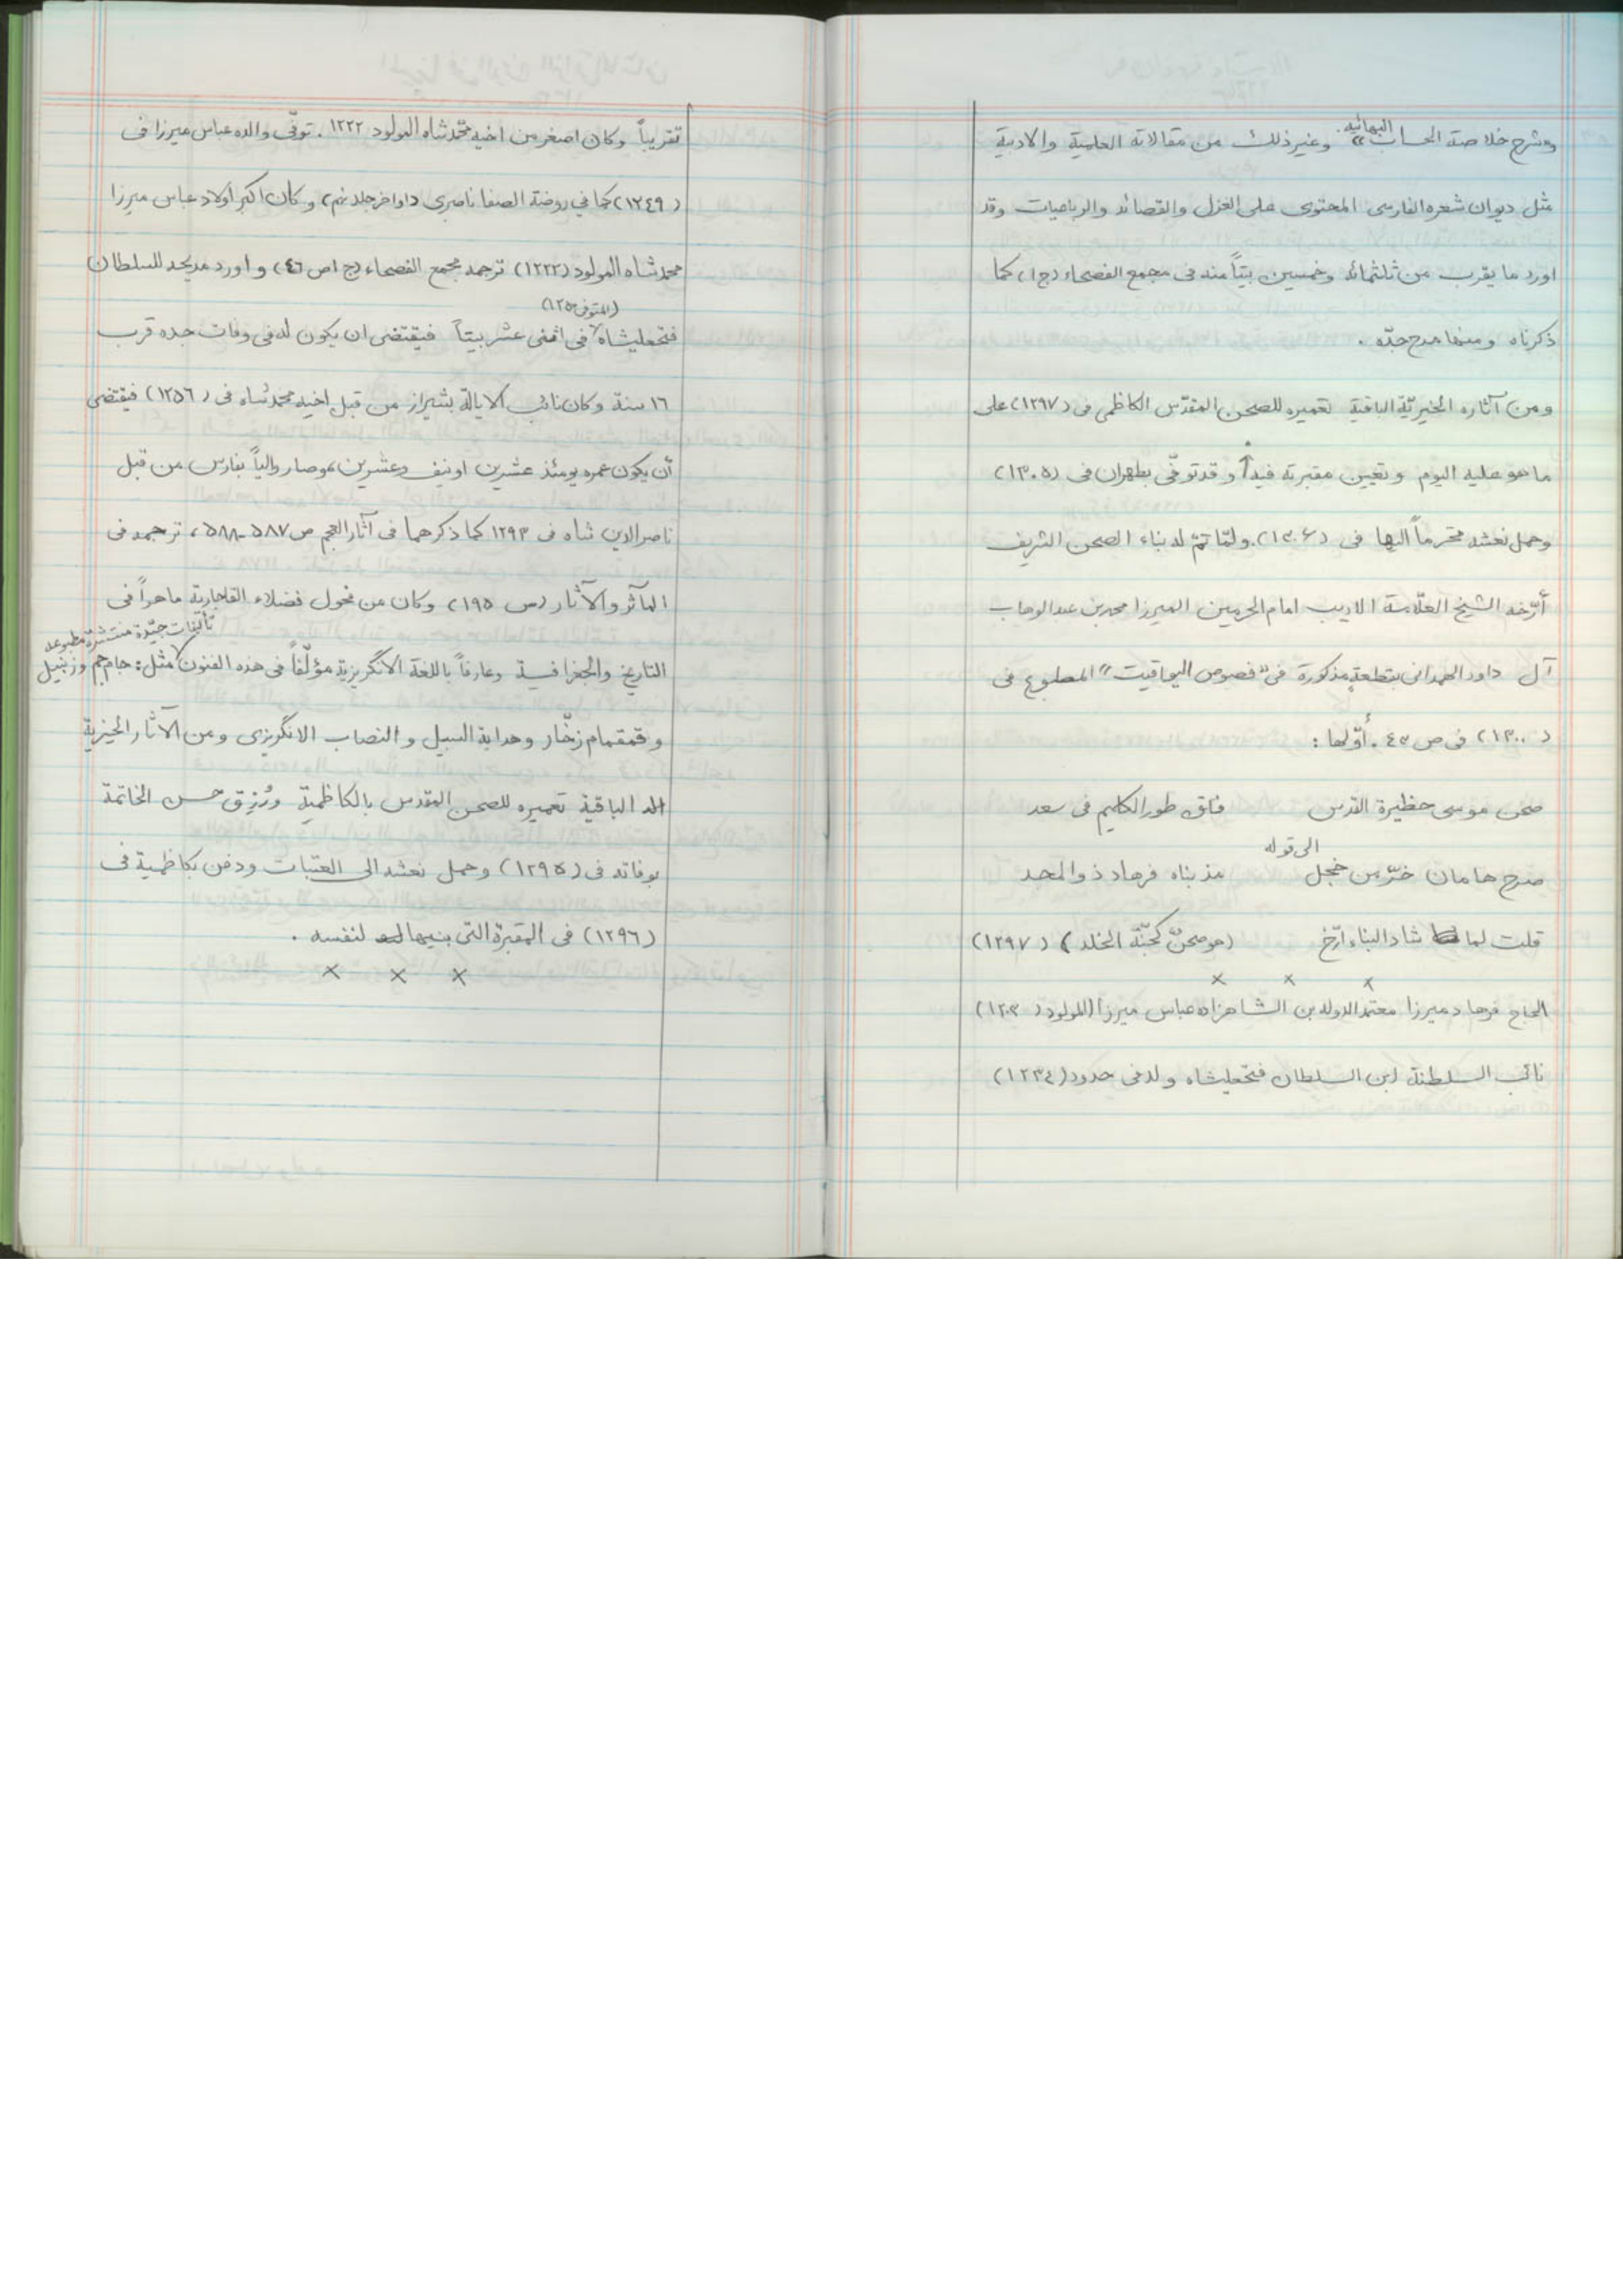 وشرح خلاصة الحساب البهائيه» وغير ذلك من مقالاته العلمية والادبية
مثل ديوان شعره الفارسى المحتوى على الغزل والقصائد والرباعيات وقد
اورد ما يقرب من ثلثمائه وخمسين بيتاً منه فى مجمع الفصحاء (ج١) كما
ذكرناه ومنها مدح جدّه .
ومن آثاره الخيريّة الباقية تعميره للصحن المقدّس الكاظمى فى (١٢٩٧) على
ما هو عليه اليوم وتعيين مقبرته فيه وقد توفّى بطهران فى (١٣٠٥)
وحمل نعشه محترماً اليها فى (١٣٠٦). ولمّا تمّ له بناء الصحن الشريف
أرّخه الشيخ العلّامة الاديب امام الحرمين الميرزا محمد بن عبد الوهاب
آل داود الهمدانى بقطعةٍ مذكورة فى «فصوص اليواقيت» المطبوع فى
(١٣٠٠) فى ص ٤٥ . أوّلها :
صحن موسى حظيرة القدس فاق طور الكليم فى سعد
الى قوله
صرح هامان خرّ من خجل مذ بناه فرهاد ذو المجد
قلت لما شاد البناء ارّخ (هو صحنٌ كجنّة الخلد) (١٢٩٧)
× × ×
الحاج فرهاد ميرزا معتمد الدوله بن الشاهزاده عباس ميرزا (المولود (١٢٠٣)
نائب السلطنة ابن السلطان فتحعليشاه ولد فى حدود (١٢٣٤)
تقريباً وكان اصغر من اخيه محمّد شاه المولود ١٢٢٢ . توفّى والده عباس ميرزا فى
(١٢٤٩) كما في روضة الصفا ناصرى داواخر جلد نهم) وكان اكبر اولاد عباس ميرزا
محمد شاه المولود (١٢٢٢) ترجمه مجمع الفصحاء (ج ١ ص ٤٦) واورد مديحه للسلطان
(المتوفى ١٢٥٠)
فتحعليشاه فى اثنى عشر بيتاً فيقتضى ان يكون له فى وفات جده قرب
١٦ سنة وكان نائب الايالة بشيراز من قبل اخيه محمد شاه فى (١٢٥٦) فيقتضى
أن يكون عمره يومئذ عشرين او نيف وعشرين، وصار والياً بفارس من قبل
ناصر الدين شاه فى ١٢٩٣ كما ذكرهما فى آثار العجم ص ٥٨٧-٥٨٨، ترجمه فى
المآثر والآثار (ص ١٩٥) وكان من فحول فضلاء القاجارية ماهراً فى
تأليفات جيّدة منتشرة مطبوعه
التاريخ والجغرافية وعارفاً باللغة الانگريزية مؤلّفاً فى هذه الفنون مثل: جام جم وزنبيل
وقمقام زخّار وهداية السبيل والنصاب الانگريزى ومن الآثار الخيرية
له الباقية تعميره للصحن المقدس بالكاظمية ورُزِق حسن الخاتمة
بوفاته فى (١٢٩٥) وحمل نعشه الى العتبات ودفن بكاظمية فى
(١٢٩٦) فى المقبرة التى بنيها لنفسه .
× × ×